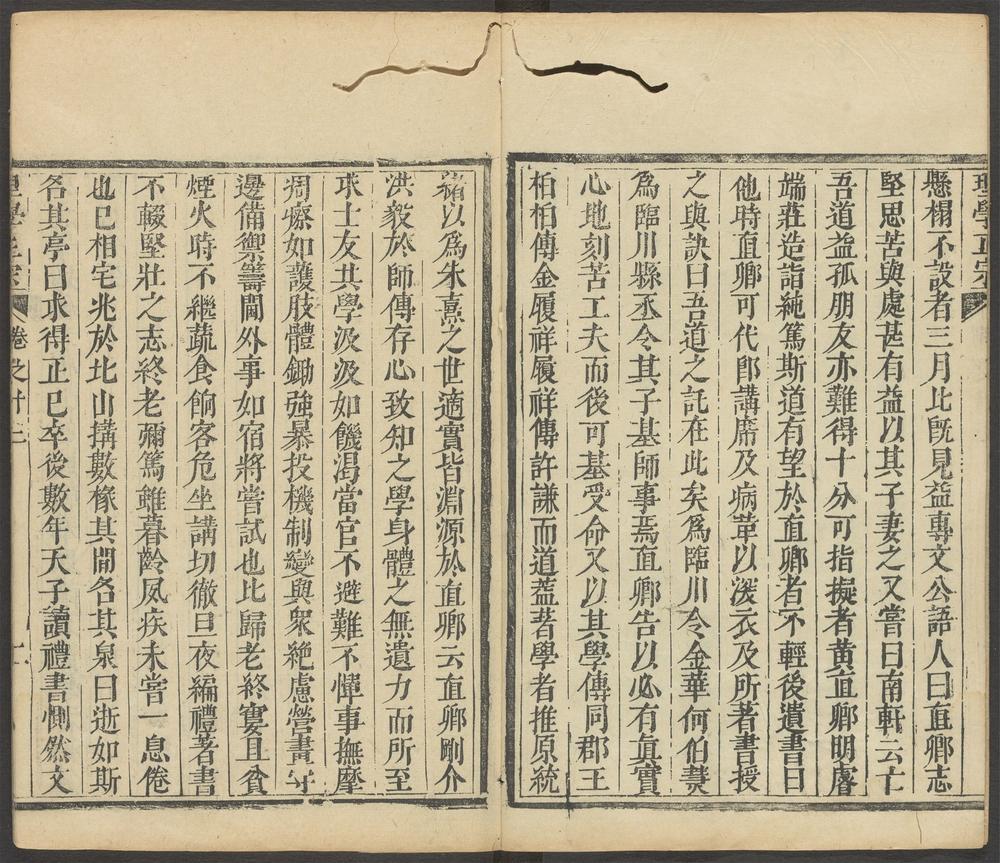 理學正宗
懸榻不設者三月比旣見益專文公語人曰直卿志
堅思苦與處甚有益以其子妻之又嘗曰南軒云亡
吾道益孤朋友亦難得十分可指擬者黃直卿明睿
端莊造詣純篤斯道有望於直卿者不輕後遺書曰
他時直卿可代郎講席及病革以深衣及所著書授
之與訣曰吾道之託在此矣爲臨川令金華何伯慧
爲臨川縣丞令其子基師事焉直卿告以必有眞實
心地刻苦工夫而後可基受命又以其學傳同郡王
柏柏傳金履祥履祥傳許謙而道益著學者推原統
緒以爲朱熹之世適實皆淵源於直卿云直卿剛介
洪毅於師傳存心致知之學身體之無遺力而所至
求士友共學汲汲如饑渴當官不避難不憚事撫摩
痌瘝如護肢體鋤強暴投機制變與衆絶慮營畫
邊備禦籌閫外事如宿將嘗試也比歸老終窶且貧
煙火時不繼蔬食餉客危坐講切徹旦夜編禮著書
不輟堅壯之志終老彌篤雖暮齡夙疾未嘗一息倦
也已相宅兆於北山搆數椽其間名其泉曰逝如斯
名其亭曰求得正已卒後數年天子讀禮書惻然文
理學正宗 卷之十二